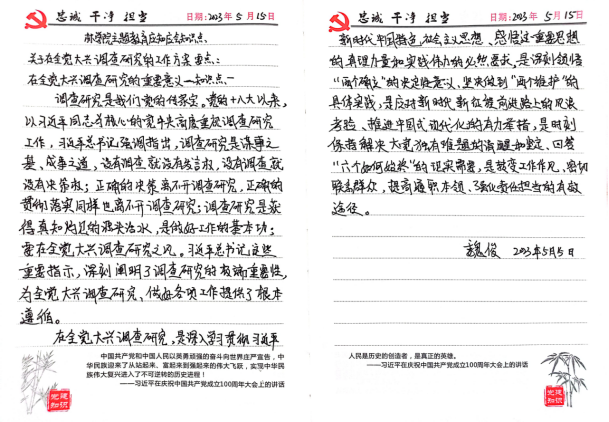 忠诚 干净 担当
日期:2023年5月15日
林学院主题教育应知应会知识点
关于在全党大兴调查研究的工作方案 要点:
在全党大兴调查研究的重要意义—知识点一
调查研究是我们党的传家宝。党的十八大以来,
以习近平同志为核心的党中央高度重视调查研究
工作,习近平总书记强调指出,调查研究是谋事之
基、成事之道,没有调查就没有发言权,没有调查就
没有决策权;正确的决策离不开调查研究,正确的
贯彻落实同样也离不开调查研究;调查研究是获
得真知灼见的源头活水,是做好工作的基本功;
要在全党大兴调查研究之风。习近平总书记这些
重要指示,深刻阐明了调查研究的极端重要性,
为全党大兴调查研究、做好各项工作提供了根本
遵循。
在全党大兴调查研究,是深入学习贯彻习近平
中国共产党和中国人民以英勇顽强的奋斗向世界庄严宣告,中
华民族迎来了从站起来、富起来到强起来的伟大飞跃,实现中华民
族伟大复兴进入了不可逆转的历史进程!
——习近平在庆祝中国共产党成立100周年大会上的讲话
党建
知识
忠诚 干净 担当
日期:2023年5月15日
新时代中国特色社会主义思想、感悟这一重要思想
的真理力量和实践伟力的必然要求,是深刻领悟
“两个确立”的决定性意义、坚决做到“两个维护”的
具体实践,是应对新时代新征程前进路上的风浪
考验、推进中国式现代化的有力举措,是时刻
保持解决大党独有难题的清醒和坚定、回答
“六个如何始终”的现实需要,是转变工作作风、密切
联系群众、提高履职本领、强化责任担当的有效
途径。
魏俊 2023年5月15日
人民是历史的创造者,是真正的英雄。
——习近平在庆祝中国共产党成立100周年大会上的讲话
党建
知识